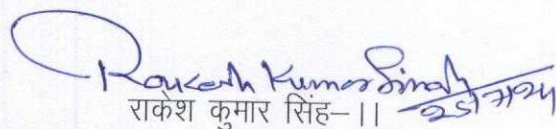 Rakesh Kumar Singh
राकेश कुमार सिंह–II